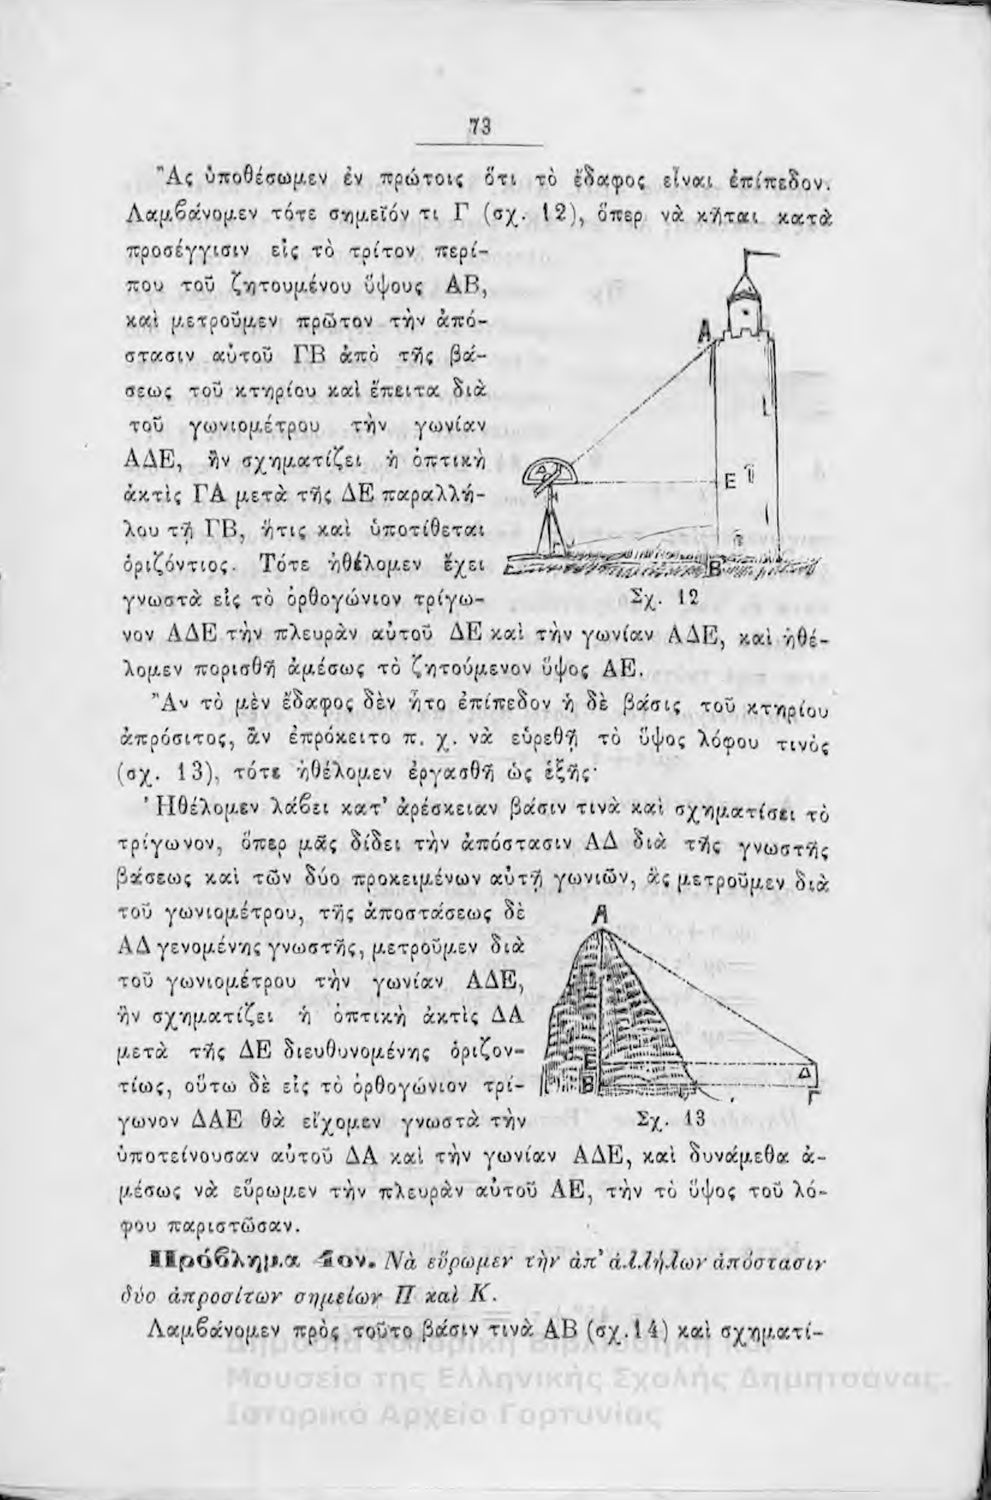 73
Ἂς ὑποθέσωμεν ἐν πρώτοις ὅτι τὸ ἔδαφος εἶναι ἐπίπεδον.
Λαμβάνομεν τότε σημεῖόν τι Γ (σχ. 12), ὅπερ νὰ κῆται κατὰ
προσέγγισιν εἰς τὸ τρίτον περί-
που τοῦ ζητουμένου ὕψους ΑΒ,
καὶ μετροῦμεν πρῶτον τὴν ἀπό-
στασιν αὐτοῦ ΓΒ ἀπὸ τῆς βά-
σεως τοῦ κτηρίου καὶ ἔπειτα διὰ
τοῦ γωνιομέτρου τὴν γωνίαν
ΑΔΕ, ἣν σχηματίζει ἡ ὀπτικὴ
ἀκτὶς ΓΑ μετὰ τῆς ΔΕ παραλλή-
λου τῇ ΓΒ, ἥτις καὶ ὑποτίθεται
ὁριζόντιος. Τότε ἠθέλομεν ἔχει
γνωστὰ εἰς τὸ ὀρθογώνιον τρίγω-
Α
Δ
Ε
Β
Σχ. 12
νον ΑΔΕ τὴν πλευρὰν αὐτοῦ ΔΕ καὶ τὴν γωνίαν ΑΔΕ, καὶ ἠθέ-
λομεν πορισθῆ ἀμέσως τὸ ζητούμενον ὕψος ΑΕ.
Ἂν τὸ μὲν ἔδαφος δὲν ἦτο ἐπίπεδον ἡ δὲ βάσις τοῦ κτηρίου
ἀπρόσιτος, ἂν ἐπρόκειτο π. χ. νὰ εὑρεθῇ τὸ ὕψος λόφου τινὸς
(σχ. 13), τότε ἠθέλομεν ἐργασθῆ ὡς ἑξῆς·
Ἠθέλομεν λάβει κατ' ἀρέσκειαν βάσιν τινὰ καὶ σχηματίσει τὸ
τρίγωνον, ὅπερ μᾶς δίδει τὴν ἀπόστασιν ΑΔ διὰ τῆς γνωστῆς
βάσεως καὶ τῶν δύο προκειμένων αὐτῇ γωνιῶν, ἃς μετροῦμεν διὰ
τοῦ γωνιομέτρου, τῆς ἀποστάσεως δὲ
ΑΔ γενομένης γνωστῆς, μετροῦμεν διὰ
τοῦ γωνιομέτρου τὴν γωνίαν ΑΔΕ,
ἣν σχηματίζει ἡ ὀπτικὴ ἀκτὶς ΔΑ
μετὰ τῆς ΔΕ διευθυνομένης ὁριζον-
τίως, οὕτω δὲ εἰς τὸ ὀρθογώνιον τρί-
γωνον ΔΑΕ θὰ εἴχομεν γνωστὰ τὴν
Α
Ε
Β
Δ
Γ
Σχ. 13
ὑποτείνουσαν αὐτοῦ ΔΑ καὶ τὴν γωνίαν ΑΔΕ, καὶ δυνάμεθα ἀ-
μέσως νὰ εὕρωμεν τὴν πλευρὰν αὐτοῦ ΑΕ, τὴν τὸ ὕψος τοῦ λό-
φου παριστῶσαν.
Πρόβλημα 4ον. Νὰ εὕρωμεν τὴν ἀπ' ἀλλήλων ἀπόστασιν
δύο ἀπροσίτων σημείων Π καὶ Κ.
Λαμβάνομεν πρὸς τοῦτο βάσιν τινὰ ΑΒ (σχ. 14) καὶ σχηματί-
Δημόσια Ιστορική Βιβλιοθήκη και
Μουσείο της Ελληνικής Σχολής Δημητσάνας.
Ιστορικό Αρχείο Γορτυνίας